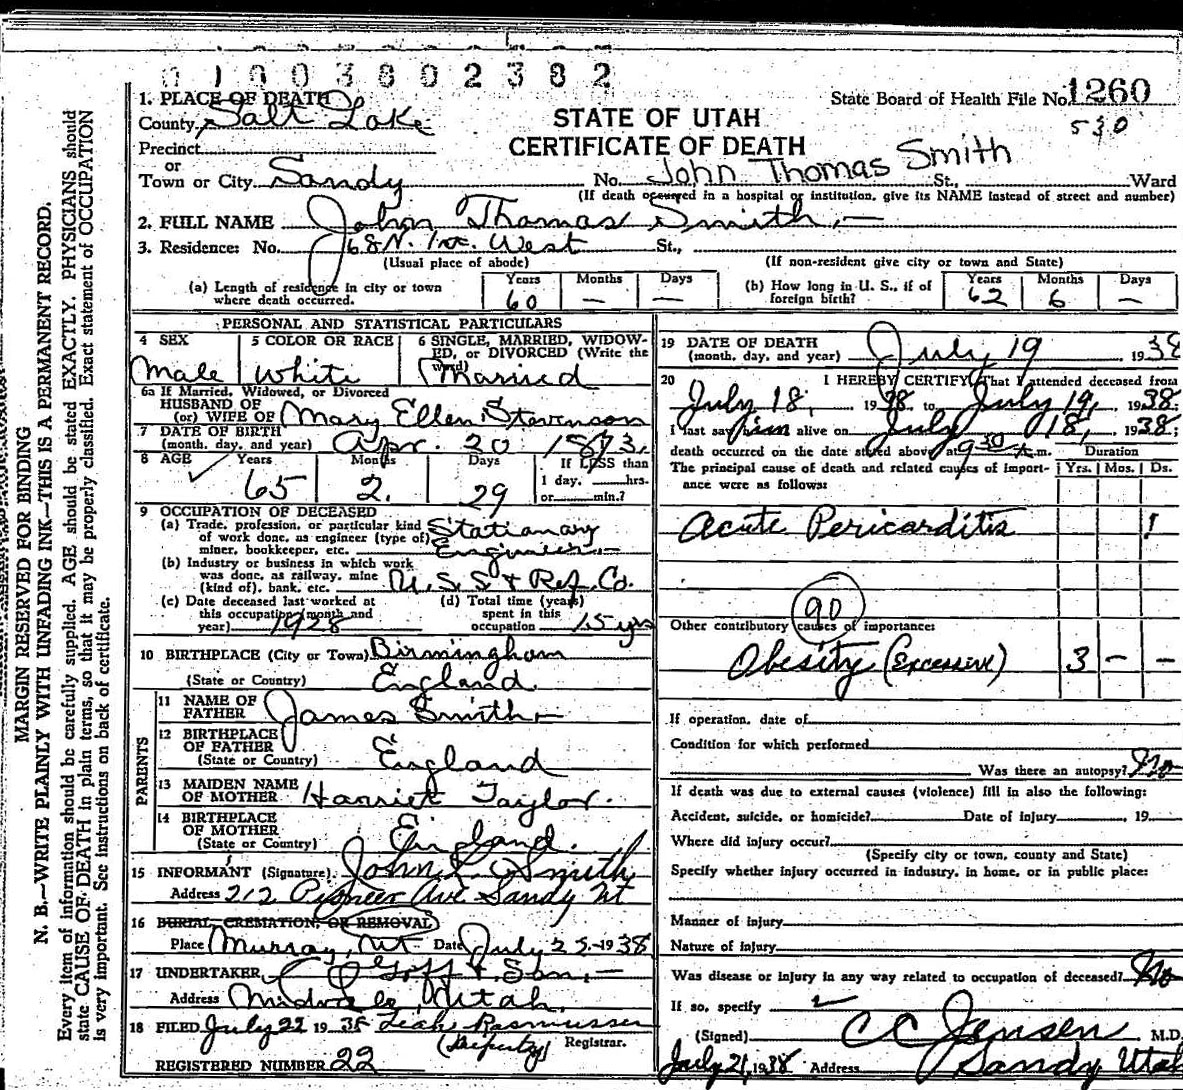 0 1 0 0 3 8 0 2 3 8 2
1. PLACE OF DEATH
County Salt Lake
STATE OF UTAH
CERTIFICATE OF DEATH
State Board of Health File No. 1260
530
Precinct
or
Town or City Sandy No. John Thomas Smith St., Ward
(If death occurred in a hospital or institution, give its NAME instead of street and number)
2. FULL NAME John Thomas Smith.—
3. Residence: No. 68 N. West St.,
(Usual place of abode) (If non-resident give city or town and State)
(a) Length of residence in city or town where death occurred. Years 60 Months — Days —
(b) How long in U. S., if of foreign birth? Years 62 Months 6 Days —
PERSONAL AND STATISTICAL PARTICULARS
4 SEX Male
5 COLOR OR RACE White
6 SINGLE, MARRIED, WIDOWED, or DIVORCED (Write the word) Married
6a If Married, Widowed, or Divorced
HUSBAND OF
(or) WIFE OF Mary Ellen Stevenson
7 DATE OF BIRTH
(month, day, and year) Apr. 20 1873.
8 AGE Years 65 Months 2. Days 29
If LESS than
1 day, hrs.
or min.?
9 OCCUPATION OF DECEASED
(a) Trade, profession, or particular kind of work done, as engineer (type of) miner, bookkeeper, etc. Stationary Engineer.—
(b) Industry or business in which work was done, as railway, mine (kind of), bank, etc. U.S.S & Ref. Co.
(c) Date deceased last worked at this occupation (month and year) 1928
(d) Total time (years) spent in this occupation 15 yrs
10 BIRTHPLACE (City or Town) Birmingham
(State or Country) England.
PARENTS
11 NAME OF FATHER James Smith.—
12 BIRTHPLACE OF FATHER
(State or Country) England
13 MAIDEN NAME OF MOTHER Harriet Taylor.
14 BIRTHPLACE OF MOTHER
(State or Country) England.
15 INFORMANT (Signature) John Smith
Address 212 Pioneer Ave. Sandy Ut
16 BURIAL, CREMATION, OR REMOVAL
Place Murray, Ut Date July 1938
17 UNDERTAKER Goff & Son,—
Address Midvale, Utah.
18 FILED July 22 1938 Leah Rasmussen
(Deputy) Registrar.
REGISTERED NUMBER 22
19 DATE OF DEATH
(month, day, and year) July 19 1938
20 I HEREBY CERTIFY (That I attended deceased from
July 18, 1938 to July 19, 1938;
I last saw him alive on July 18, 1938;
death occurred on the date stated above at 9 30 A.m.
Duration
The principal cause of death and related causes of importance were as follows: Yrs. Mos. Ds.
Acute Pericarditis 1
90
Other contributory causes of importance:
Obesity (Excessive) 3 — —
If operation, date of
Condition for which performed
Was there an autopsy? No
If death was due to external causes (violence) fill in also the following:
Accident, suicide, or homicide? Date of injury , 19
Where did injury occur?
(Specify city or town, county and State)
Specify whether injury occurred in industry, in home, or in public place:
Manner of injury
Nature of injury
Was disease or injury in any way related to occupation of deceased? No
If so, specify
(Signed) C C Jensen M.D.
July 21, 1938 Address Sandy Utah
MARGIN RESERVED FOR BINDING
N. B.—WRITE PLAINLY WITH UNFADING INK—THIS IS A PERMANENT RECORD.
Every item of information should be carefully supplied. AGE should be stated EXACTLY. PHYSICIANS should
state CAUSE OF DEATH in plain terms, so that it may be properly classified. Exact statement of OCCUPATION
is very important. See instructions on back of certificate.